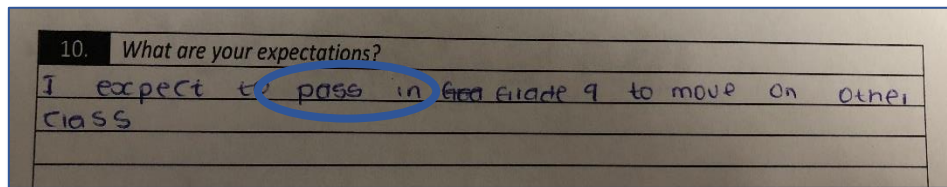 10. What are your expectations?
I expect to pass in Grade 9 to move on other
class